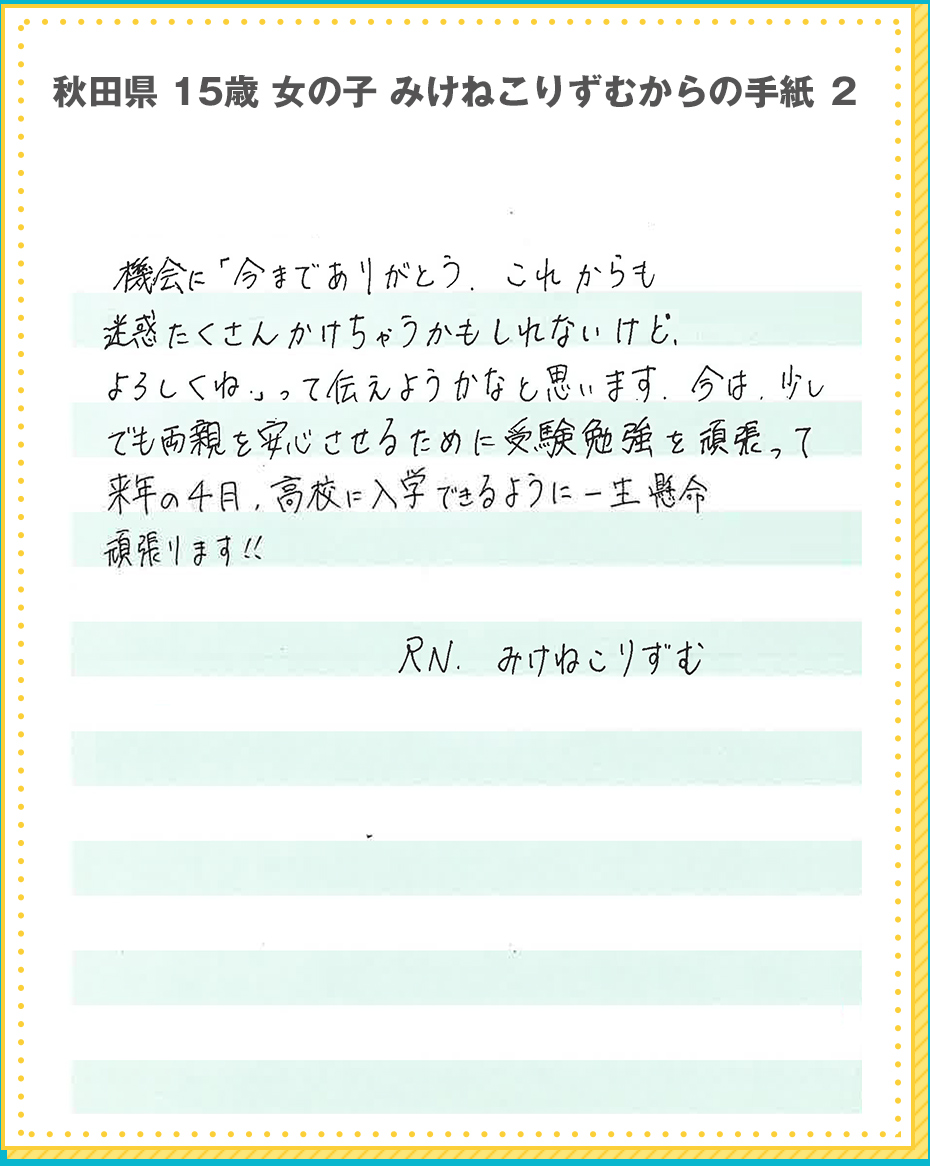 秋田県 15歳 女の子 みけねこりずむからの手紙 2
機会に「今までありがとう. これからも
迷惑たくさんかけちゃうかもしれないけど、
よろしくね。」って伝えようかなと思います. 今は、少し
でも両親を安心させるために受験勉強を頑張って
来年の4月、高校に入学できるように一生懸命
頑張ります!!
RN. みけねこりずむ